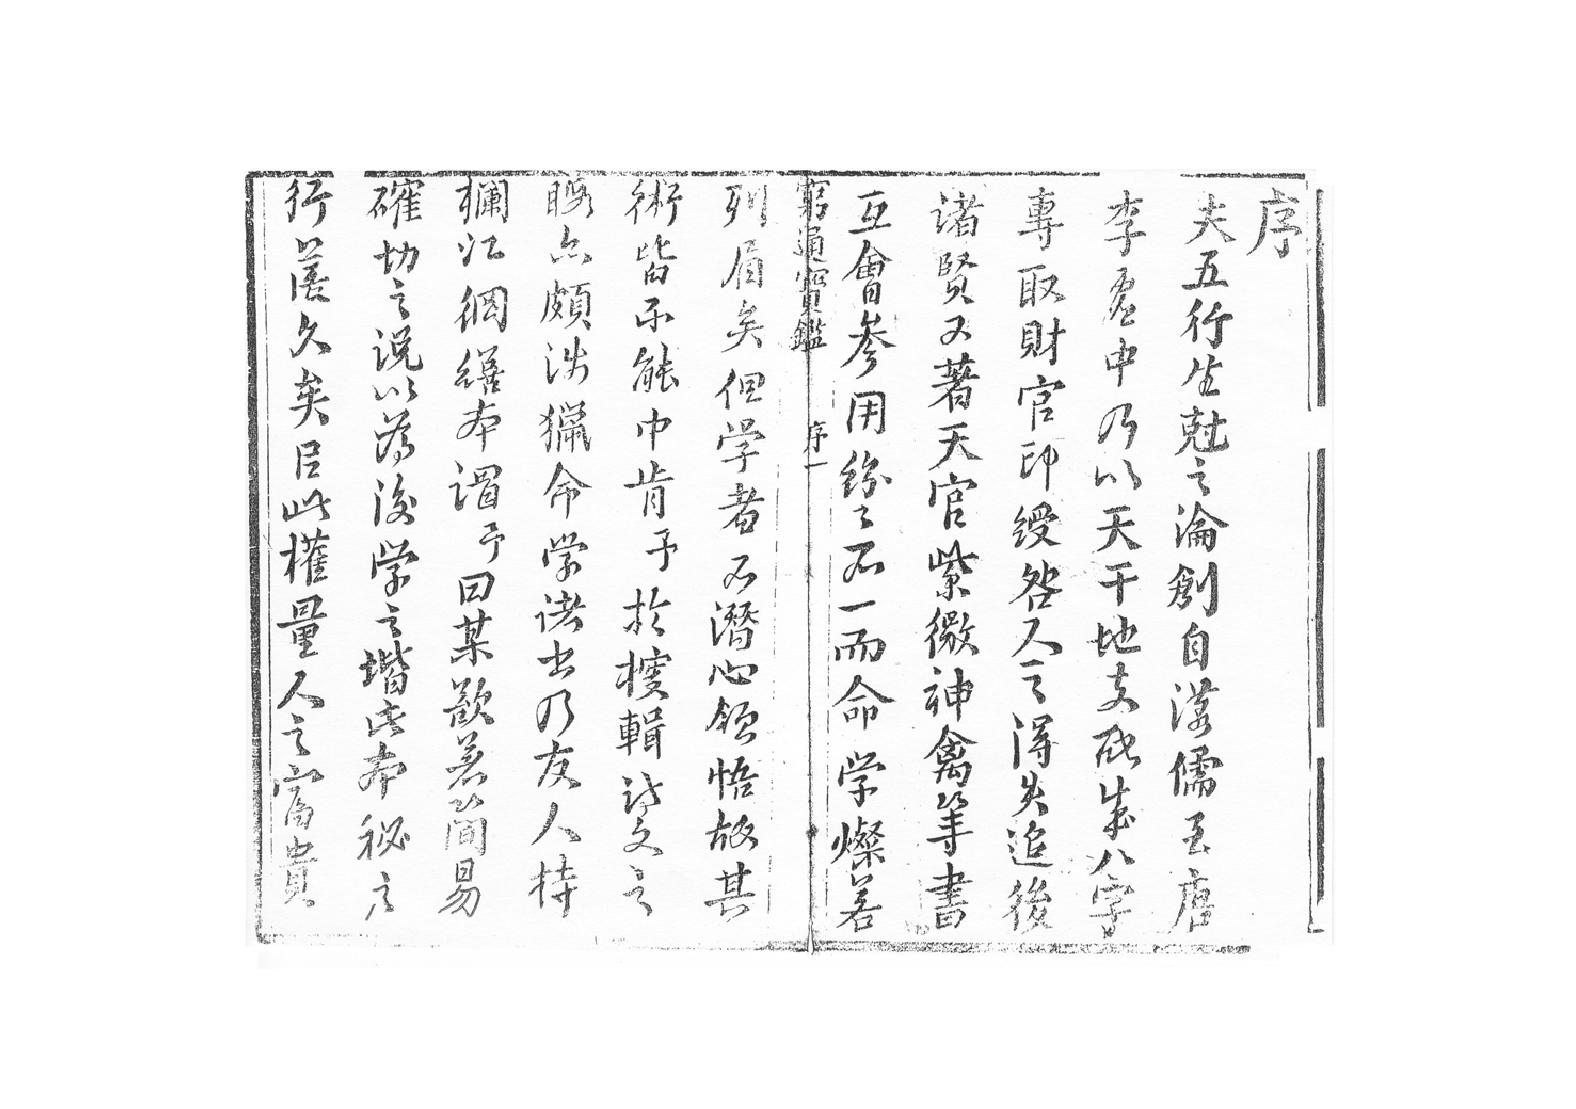 序
夫五行生尅之論創自漢儒至唐
李虛中乃以天干地支配成八字
專取財官印綬咎人之得失迨後
諸賢又著天官紫微神禽等書
互會參用紛々不一而命学燦若
窮通寶鑑 序 一
列眉矣但学者不潛心領悟故其
術皆不能中肯予於搜輯詩文之
暇亦頗涉獵命学諸书乃友人持
欄江網繕本謂予曰某欲著簡易
確切之說以為後学之堦此本秘之
行篋久矣臣此權量人之富貴